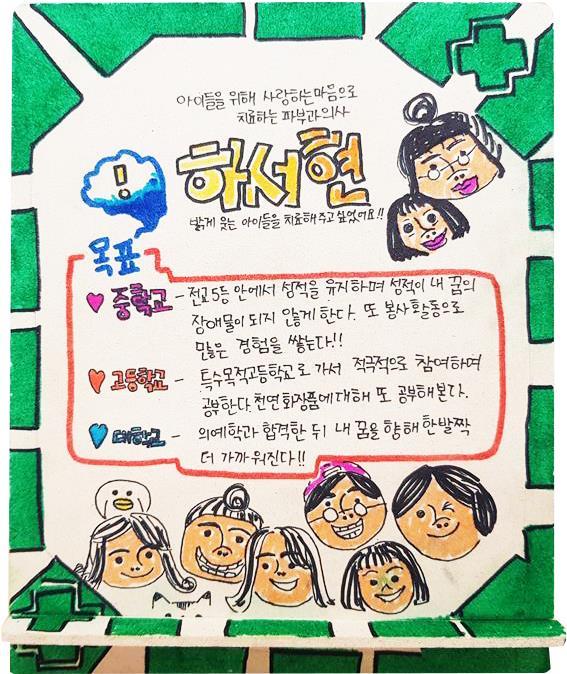 아이들을 위해 사랑하는 마음으로
치료하는 피부과 의사
하서현
밝게 웃는 아이들을 치료해 주고 싶었어요!!
!
목표
중학교 - 전교 5등 안에서 성적을 유지하며 성적이 내 꿈의
장애물이 되지 않게 한다. 또 봉사 활동으로
많은 경험을 쌓는다!!
고등학교 - 특수목적고등학교로 가서 적극적으로 참여하며
공부한다. 천연 화장품에 대해 또 공부해 본다.
대학교 - 의예학과 합격한 뒤 내 꿈을 향해 한발짝
더 가까워진다!!